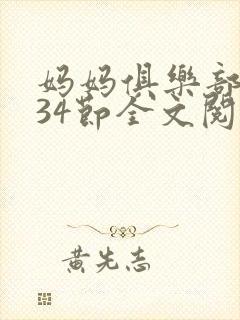 妈妈俱樂部
34節全文閱
黄先志